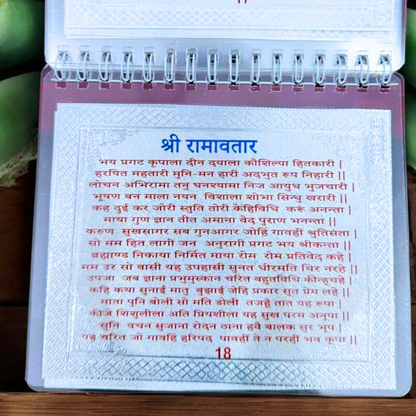 श्री रामावतार
भय प्रगट कृपाला दीन दयाला कौशिल्या हितकारी |
हरषित महतारी मुनि-मन हारी अदभुत रूप निहारी ||
लोचन अभिरामा तनु घनश्यामा निज आयुध भुजचारी |
भूषण बन माला नयन विशाला शोभा सिन्धु खरारी ||
कह दुई कर जोरी स्तुति तोरी केहिविधि करूं अनन्ता |
माया गुण ज्ञान तीत अमाना वेद पुराण भनन्ता ||
करुणा सुखसागर सब गुनआगर जोहिं गावहीं श्रुतिसंता |
सो मम हित लागी जन अनुरागी प्रगट भय श्रीकन्ता ||
ब्रह्माण्ड निकाया निर्मित माया रोम रोम प्रतिवेद कहे |
मम उर सो वासी यह उपहासी सुनत धीरमति थिर नरहे |
उपजा जब ज्ञाना प्रभुमुस्काना चरित बहुतविधि कीन्हचहे
कहि कथा सुनाई मातु बुझाई जेहि प्रकार सूत प्रेम लहे |
माता पुनि बोली सो मति डोली तजहूँ तात यह रूपा |
कीजे शिशुलीला अति प्रियशीला यह सुख परम अनूपा |
सुनि वचन सुजाना रोदन ठाना हवे बालक सुर भूप |
यह चरित जो गावहिं हरिपद पावहीं ते न परहीं भव कूपा |
18